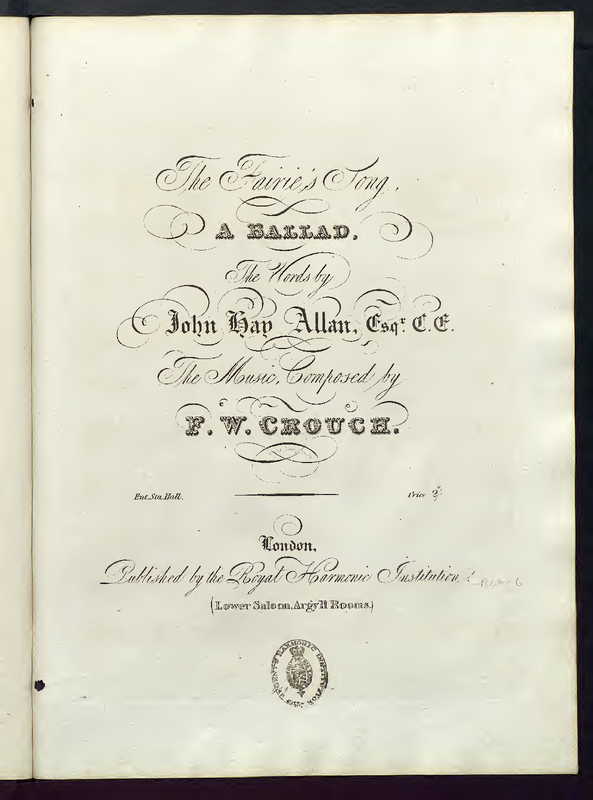 The Fairie's Song,
A BALLAD,
The Words by
John Hay Allan, Esqr. C.E.
The Music, Composed by
F. W. CROUCH.
Ent. Sta. Hall.
Price 2/.
London,
Published by the Royal Harmonic Institution,
(Lower Saloon, Argyll Rooms.)
REGENT'S HARMONIC INSTITUTION